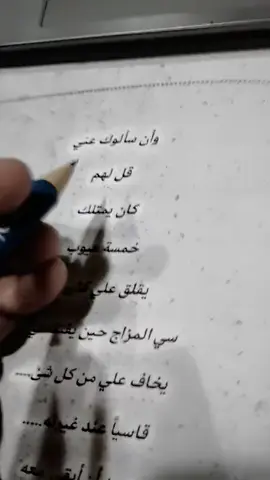 وأن سألوك عني
قل لهم
كان يمتلك
خمسة عيوب
يقلق علي
سي المزاج حين
يخاف علي من كل شئ....
قاسياً عند غيرته.....
أن أبقى معه